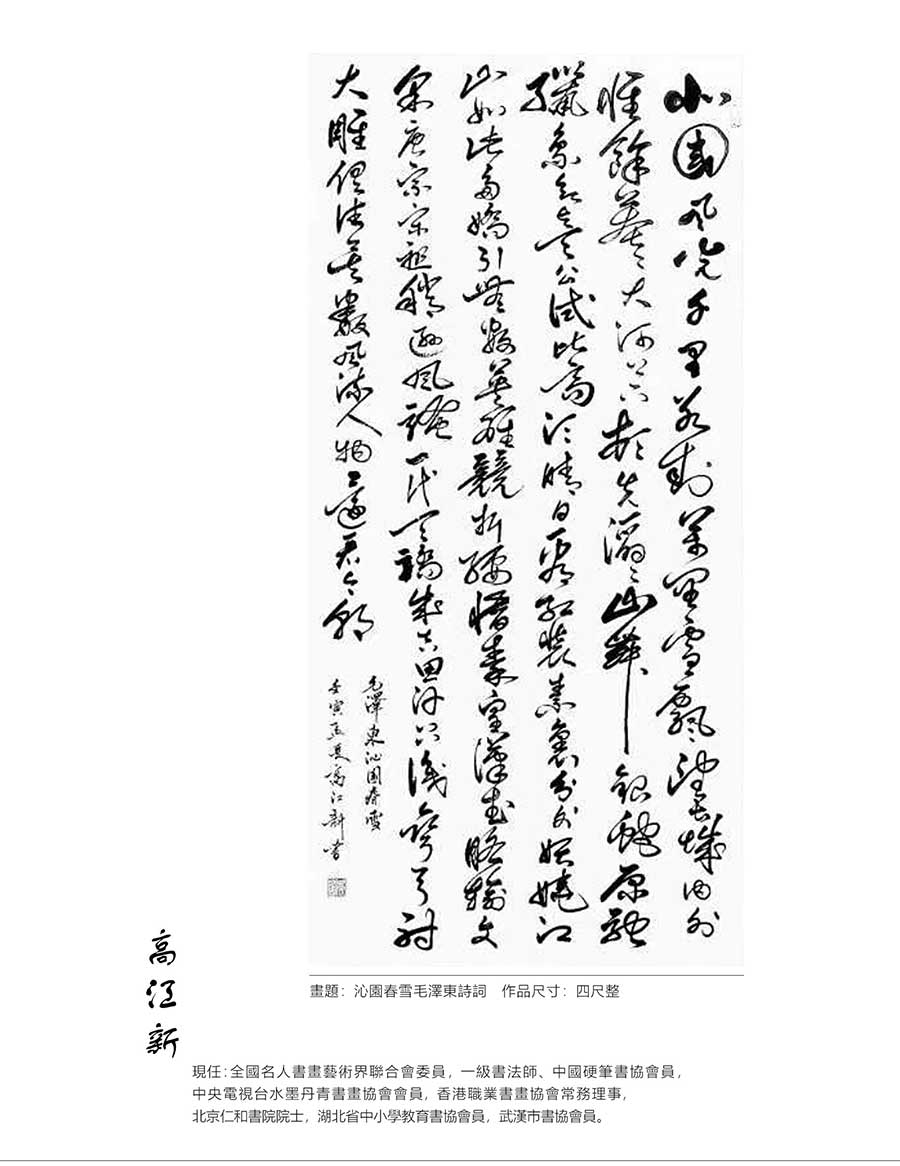 北國風光千里冰封萬里雪飄望長城內外
惟餘莽〻大河上下頓失滔〻山舞銀蛇原馳
蠟象欲與天公試比高須晴日看紅裝素裹分外妖嬈江
山如此多嬌引無數英雄競折腰惜秦皇漢武略輸文
采唐宗宋祖稍遜風騷一代天驕成吉思汗只識彎弓射
大雕俱往矣數風流人物還看今朝
毛澤東沁園春雪
壬寅孟夏高江新書
畫題：沁園春雪毛澤東詩詞　作品尺寸：四尺整
高江新
現任：全國名人書畫藝術界聯合會委員，一級書法師、中國硬筆書協會員，
中央電視台水墨丹青書畫協會會員，香港職業書畫協會常務理事，
北京仁和書院院士，湖北省中小學教育書協會員，武漢市書協會員。